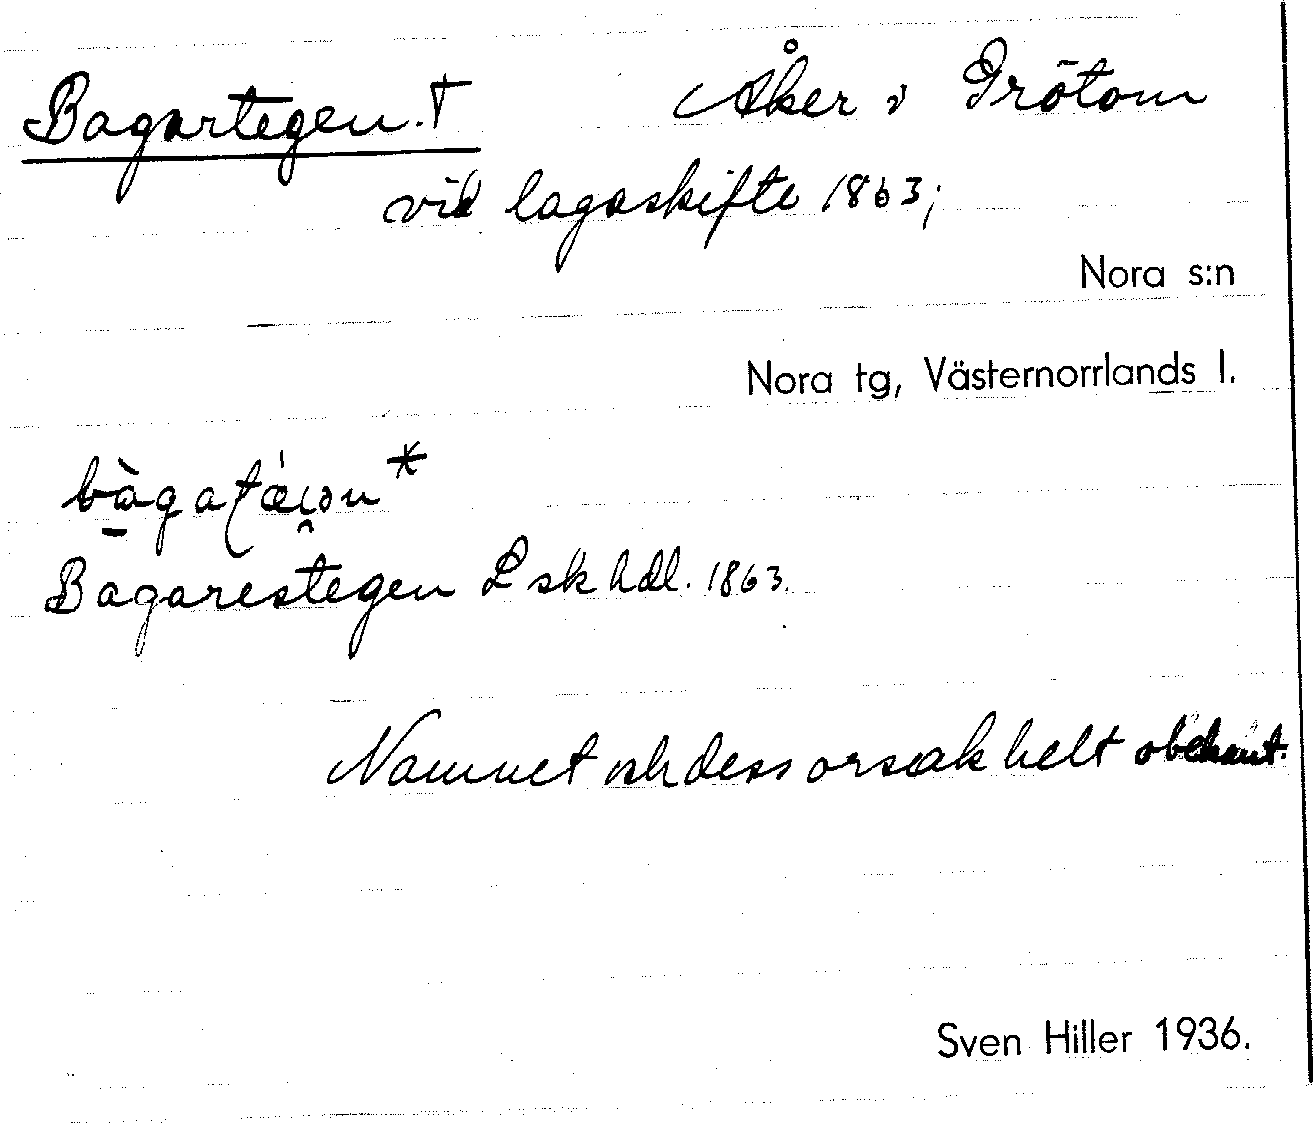 Bagartegen. † Åker i Grötom
vid lagaskifte 1863;
Nora s:n
Nora tg, Västernorrlands l.
Bagarestegen L sk hdl. 1863.
Namnet och dess orsak helt obekant.
Sven Hiller 1936.